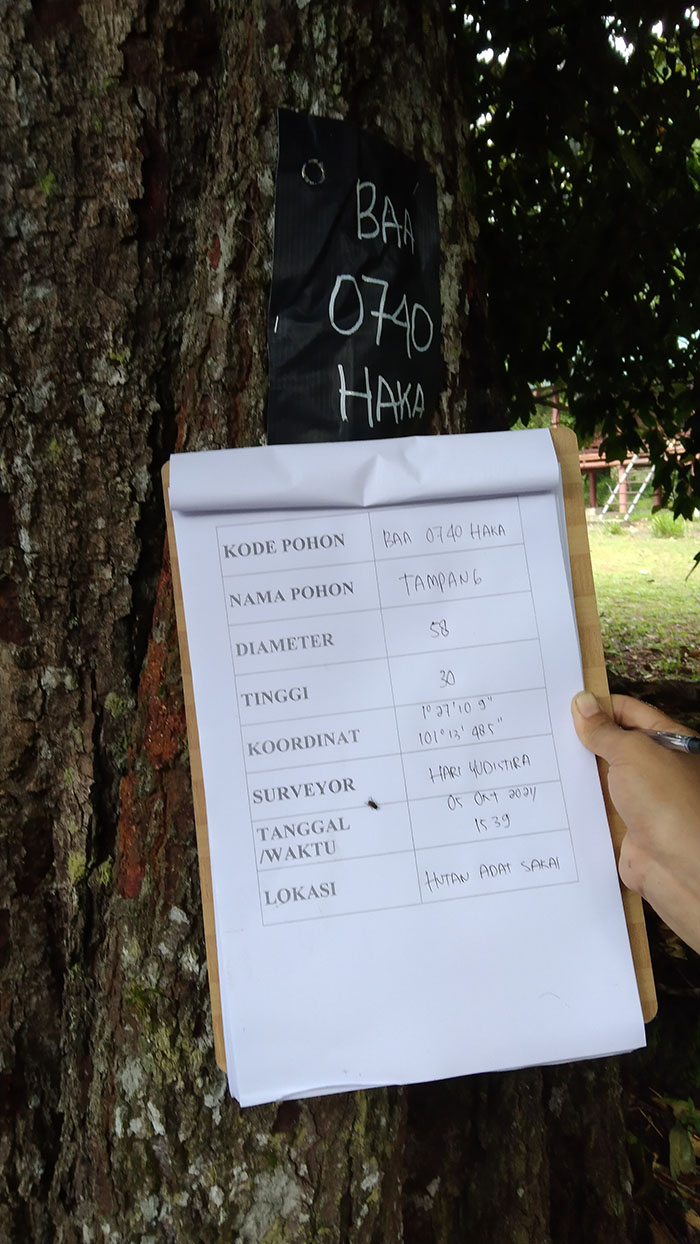 BAA
0740
HAKA
KODE POHON BAA 0740 HAKA
NAMA POHON TAMPANG
DIAMETER 58
TINGGI 30
KOORDINAT 1°27'10 9"
101°13' 485"
SURVEYOR HARI YUDISTIRA
TANGGAL 05 Okt 2021
/WAKTU 1539
LOKASI HUTAN ADAT SAKAI